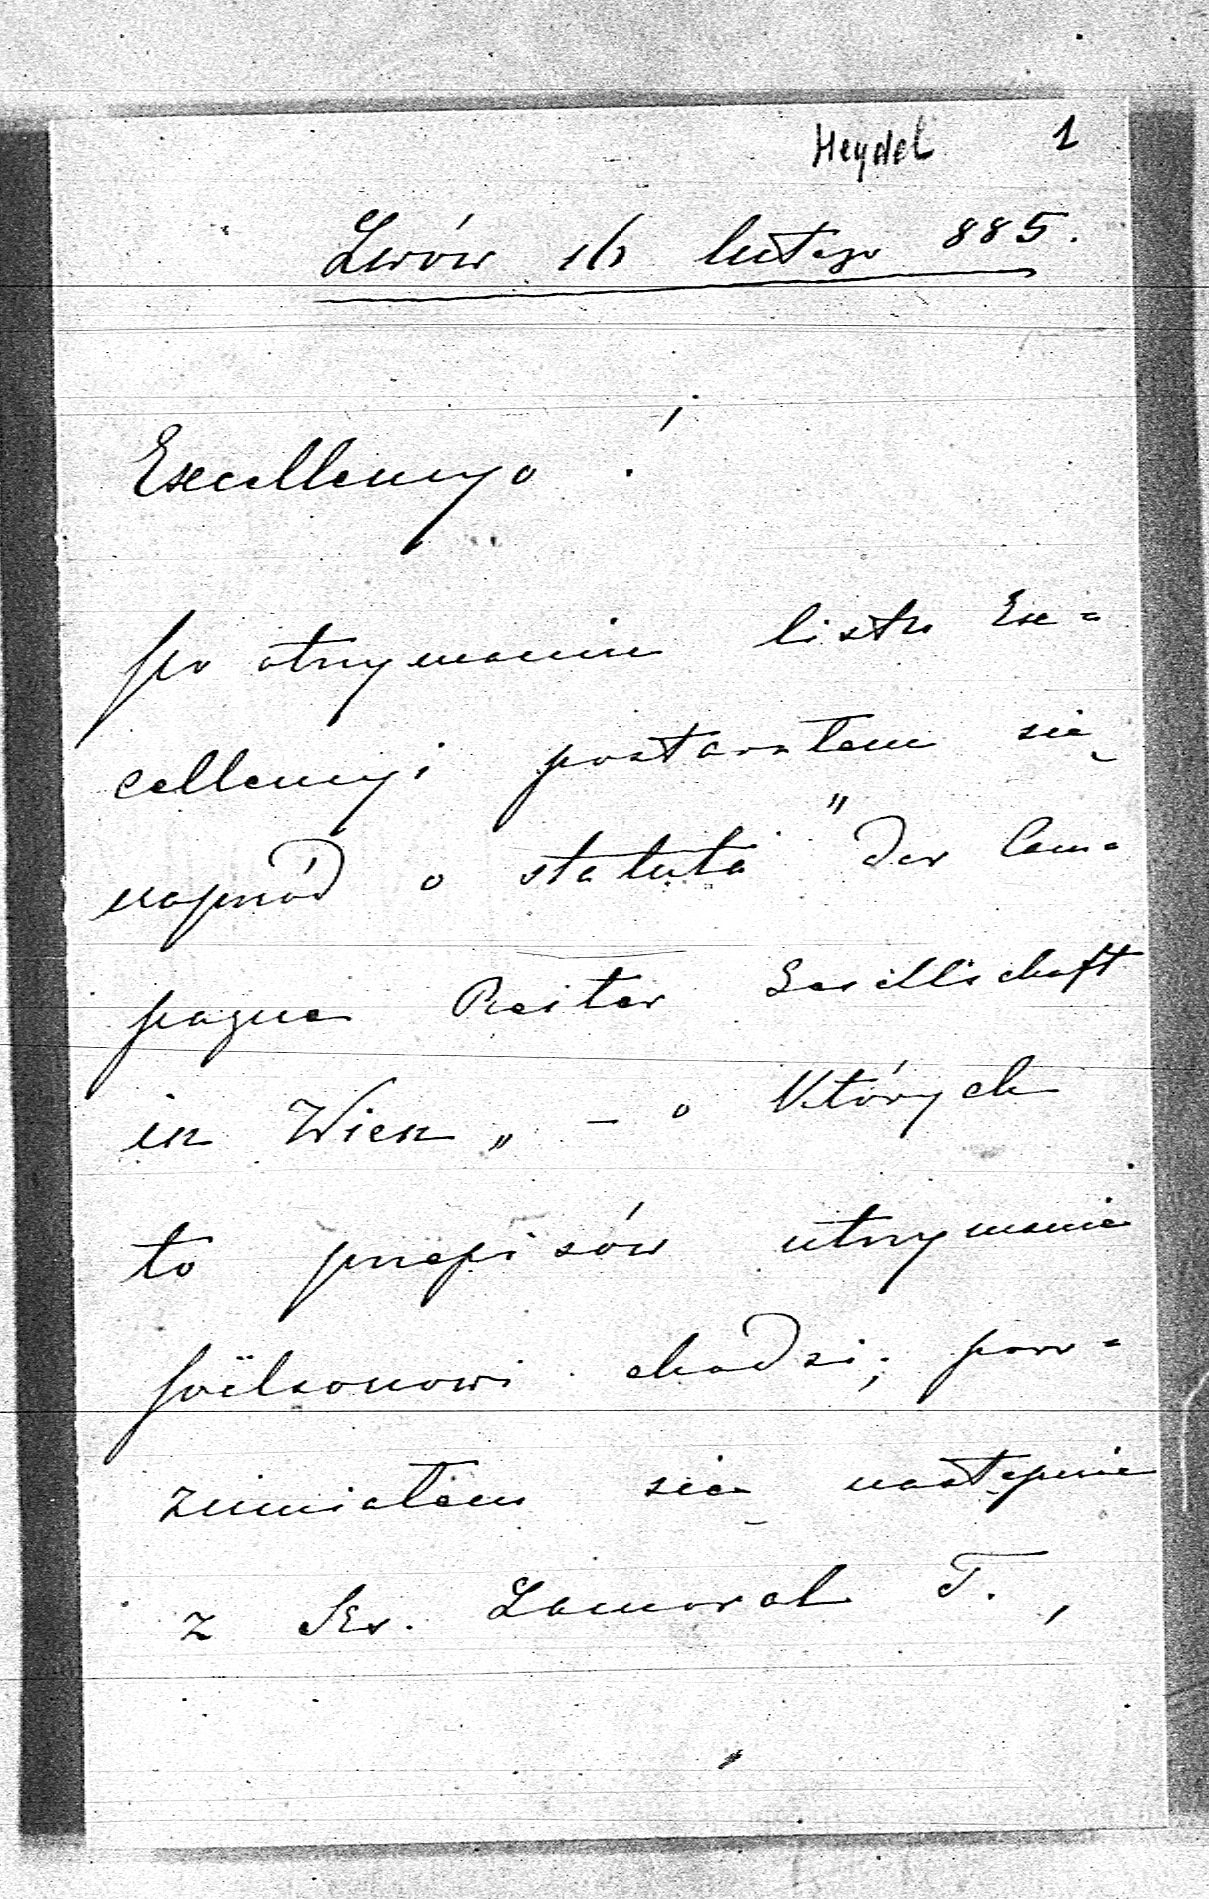 Heydel 1
Lwów 16 lutego 885.
Excellencyo!
po otrzymaniu listu Ex=
cellencyi postarałem się
naprzód o statuta "der Cam=
pagne Reiter Gesellschaft
in Wien„ - o których
to przepisów utrzymanie
chodzi; poro=
zumiałem się następnie
z Lamoral T.,